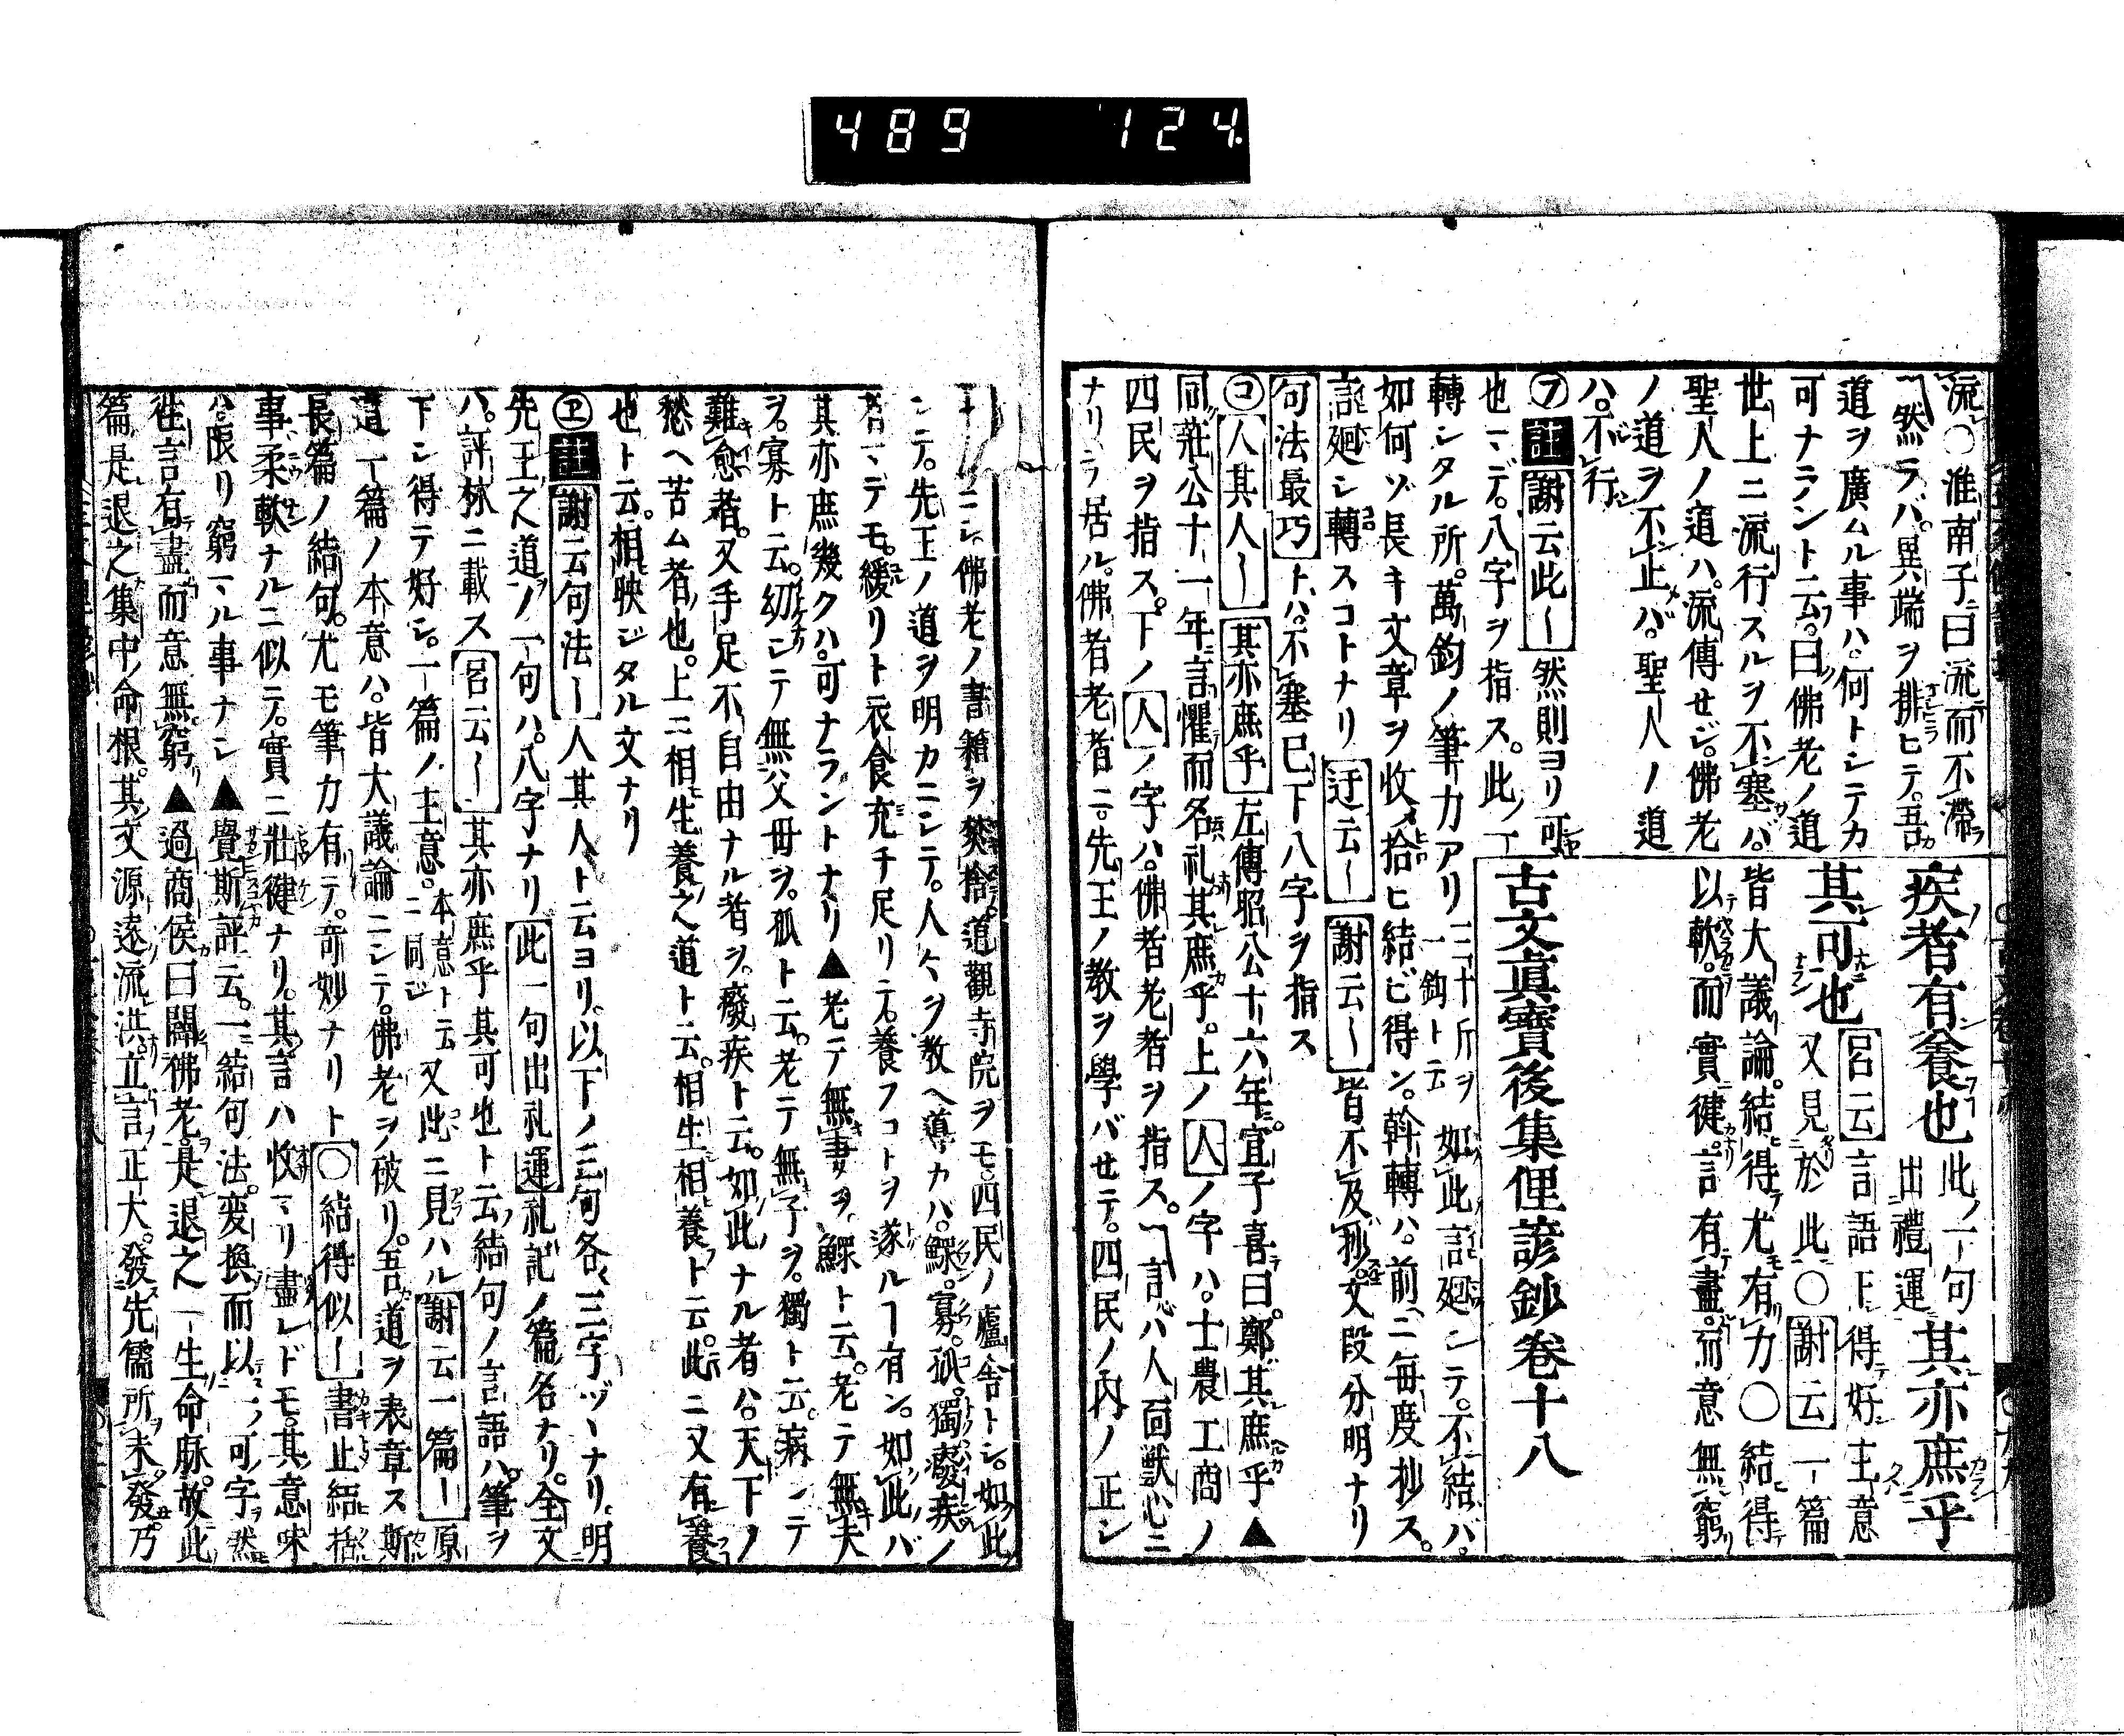 489 124
流○淮南子曰流而不滯
然ラバ。異端ヲ排ヒテ。吾
道ヲ廣ムル事ハ。何トシテカ
可ナラントト云。曰佛老ノ道
世上ニ流行スルヲ不塞バ。
聖人ノ道ハ。流傳セジ。佛老
ノ道ヲ不止バ。聖人ノ道
ハ。不行
疾者有養也此ノ一句出禮運其亦庶乎
其可也又見於此○呂云言語下得好主意
謝云一篇
皆大議論。結得尤有力○結得
以軟。而實健。言有盡。而意無窮
古文眞寶後集俚諺鈔卷十八
㋫註謝云此〳〵然則ヨリ可
也マデ。八字ヲ指ス。此ノ一
轉シタル所。萬鈞ノ筆力アリ三十斤ヲ一鈞ト云如此詞廻シテ。不結バ。
如何ゾ長キ文章ヲ收メ拾ヒ結ビ得ン。斡轉ハ。前ニ毎度抄ス。
詞廻シ轉スコトナリ迂云〳〵謝云〳〵皆不及抄。文段分明ナリ
句法最巧トハ。不塞已下八字ヲ指ス
㋙人其人〳〵其亦庶乎左傳昭公十六年。宣子喜曰。鄭其庶乎▲
同莊公十一年。言懼而名礼其庶乎。上ノ人ノ字ハ。士農工商ノ
四民ヲ指ス。下ノ人ノ字ハ。佛者老者ヲ指ス。言ハ人面獸心ニ
ナリテ居ル。佛者老者ニ。先王ノ教ヲ學バセテ。四民ノ内ノ正シ
ニシ佛老ノ書籍ヲ焚捨。道觀寺院ヲモ。四民ノ廬舎トシ。如此
シテ。先王ノ道ヲ明カニシテ。人々ヲ教ヘ導カハ。鰥。寡。孤。獨。癈疾ノ
者マデモ。緩リト衣食充チ足リテ。養フコトヲ遂ルヿ有ン。如此バ
其亦庶幾クハ。可ナラントナリ▲老テ無妻ヲ。鰥ト云。老テ無夫
ヲ。寡ト云。幼シテ無父母ヲ。孤ト云。老テ無子ヲ。獨ト云。病シテ
難愈者。又手足不自由ナル者ヲ。癈疾ト云。如此ナル者ハ。天下ノ
愁ヘ苦ム者也。上ニ相生養之道ト云。相生相養ト云。此ニ又有養
也ト云。相映ジタル文ナリ
㋓註謝云句法〳〵人其人ト云ヨリ。以下ノ三句各〻三字ヅヽナリ。明
先王之道ノ一句ハ。八字ナリ此一句出礼運礼記ノ篇名ナリ。全文
ハ。評林ニ載ス呂云〳〵其亦庶乎其可也ト云結句ノ言語ハ。筆ヲ
下シ得テ好シ。一篇ノ主意。本意ト云ニ同ジ又此ニ見ハル謝云一篇〳〵原
道一篇ノ本意ハ。皆大議論ニシテ。佛老ヲ破リ。吾道ヲ表章ス斯
長篇ノ結句。尤モ筆力有テ。奇妙ナリト○結得似〳〵書止結括
事柔軟ナルニ似テ。實ニ壯健ナリ。其言ハ收マリ盡レドモ。其意味
ハ。限リ窮マル事ナシ▲覺斯評云。一結句法。変換而以一可字。然
徃言有盡而意無窮▲過商侯曰闢佛老。是退之一生命脉。故此
篇是退之集中命根。其文源遠流洪。立言正大。發先儒所未發。乃